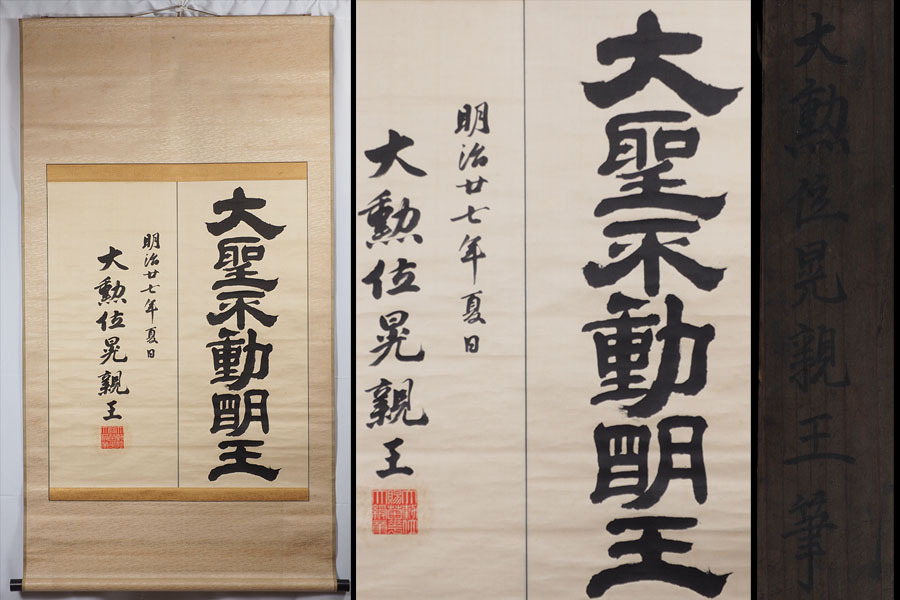 大聖不動明王
明治廿七年夏日
大勲位晃親王
大聖不動明王
明治廿七年夏日
大勲位晃親王
大勲位晃親王筆